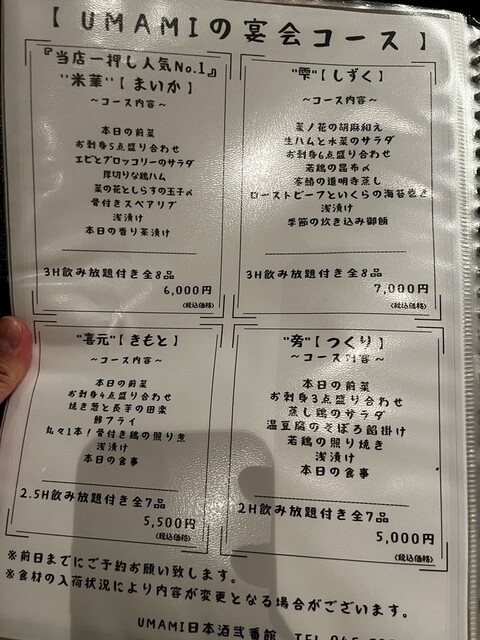 【UMAMIの宴会コース】
『当店一押し人気No.1』
"米華"【まいか】
～コース内容～
本日の前菜
お刺身5点盛り合わせ
エビとブロッコリーのサラダ
厚切りな鶏ハム
菜の花としらすの玉子〆
骨付きスペアリブ
浅漬け
本日の香り茶漬け
3H飲み放題付き全8品
6,000円
(税込価格)
"雫"【しずく】
～コース内容～
菜ノ花の胡麻和え
生ハムと水菜のサラダ
お刺身6点盛り合わせ
若鶏の昆布〆
の道明寺蒸し
ローストビーフといくらの海苔巻き
浅漬け
季節の炊き込み御飯
3H飲み放題付き全8品
7,000円
(税込価格)
"喜元"【きもと】
～コース内容～
本日の前菜
お刺身4点盛り合わせ
焼き葱と長芋の田楽
フライ
丸々1本!骨付き鶏の照り煮
浅漬け
本日の食事
2.5H飲み放題付き全7品
5,500円
(税込価格)
"旁"【つくり】
～コース内容～
本日の前菜
お刺身3点盛り合わせ
蒸し鶏のサラダ
温豆腐のそぼろ餡掛け
若鶏の照り焼き
浅漬け
本日の食事
2H飲み放題付き全7品
5,000円
(税込価格)
※前日までにご予約お願い致します。
※食材の入荷状況により内容が変更となる場合がございます。
UMAMI日本酒弐番館 TEL